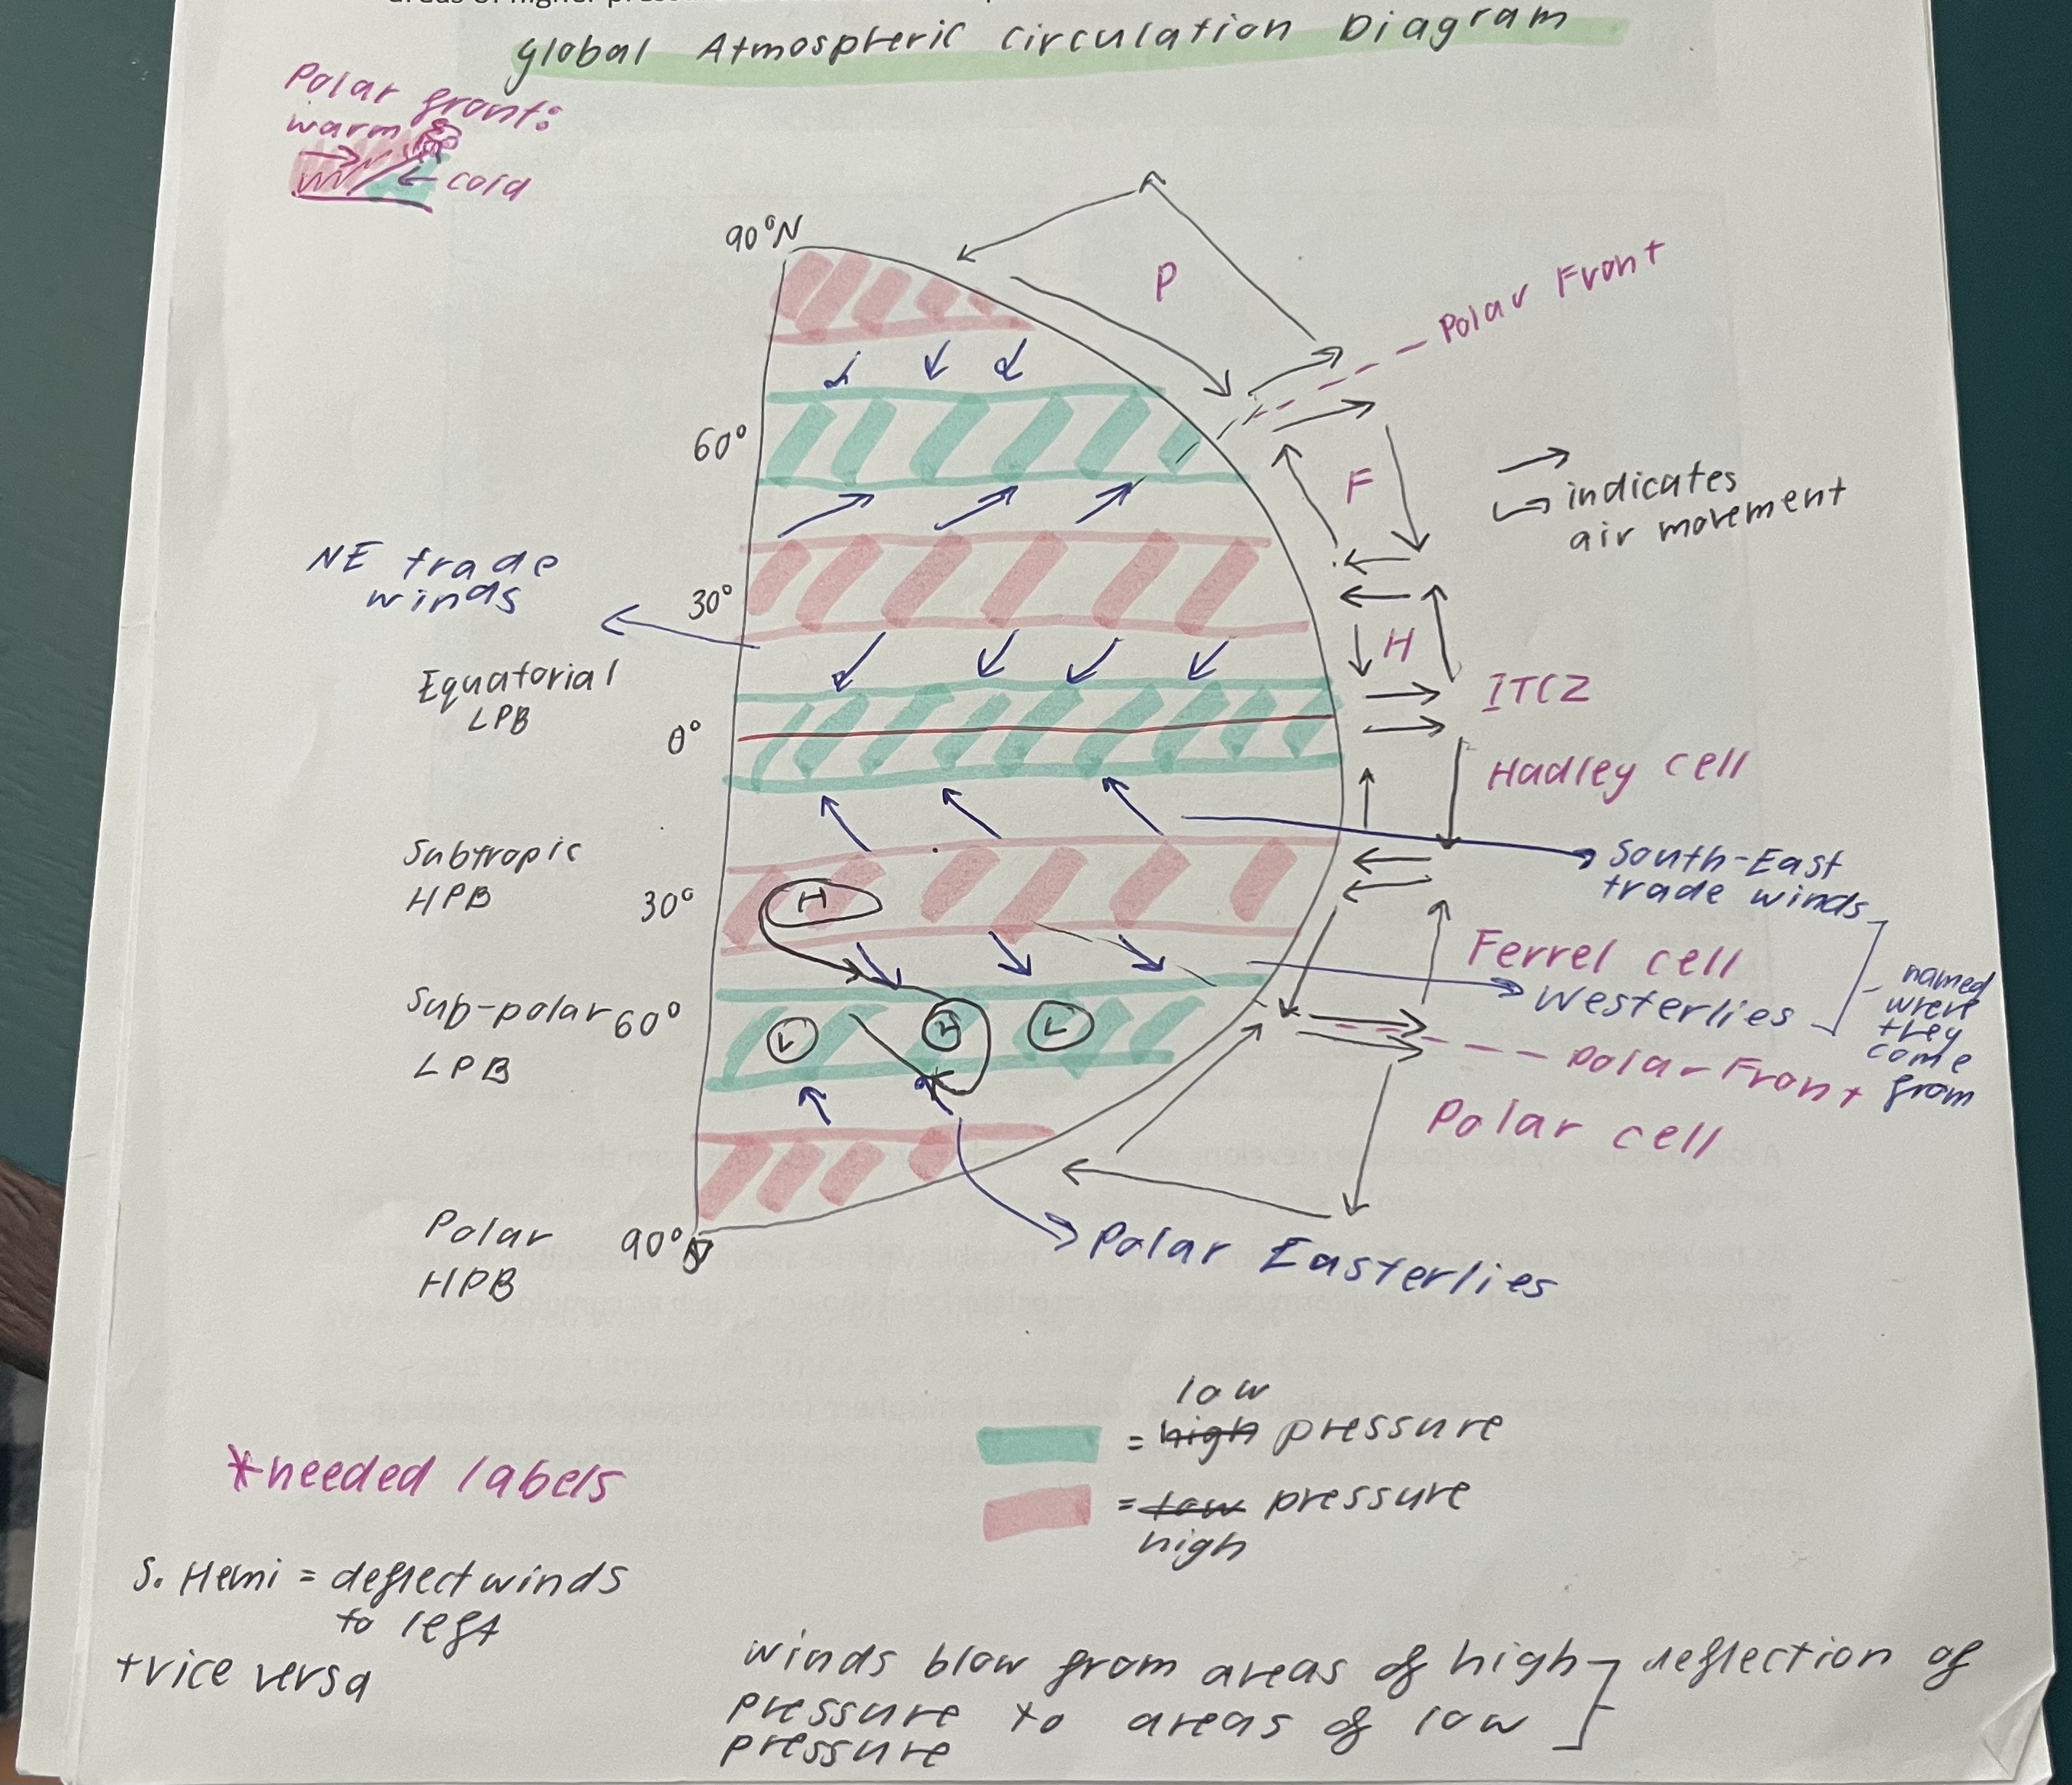 Global Atmospheric Circulation Diagram
Polar front:
warm
cold
90°N
P
Polar Front
60°
F
indicates
air movement
NE trade
winds
30°
H
Equatorial
LPB
ITCZ
0°
Hadley cell
Subtropic
HPB
South-East
trade winds
30°
H
Ferrel cell
Westerlies
named
where
they
come
from
Sub-polar 60°
LPB
L
L
L
Polar Front
Polar cell
Polar
HPB
90°S
Polar Easterlies
low
= high pressure
= low pressure
high
*needed labels
S. Hemi = deflect winds
to left
+ vice versa
winds blow from areas of high
pressure to areas of low
pressure
deflection of